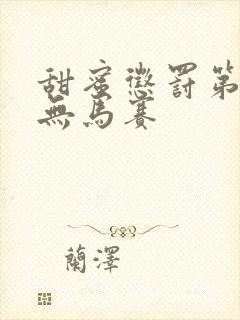 甜蜜懲罰第
無馬賽
蘭澤